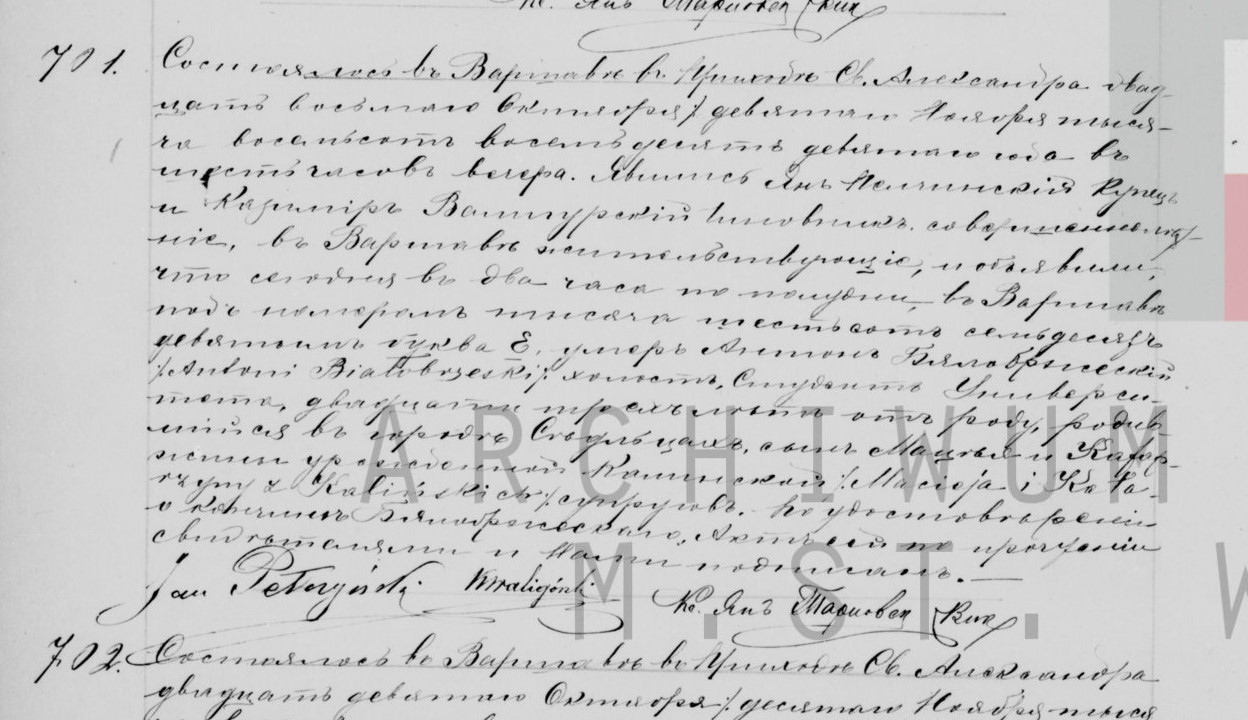 Кс. Янъ Тарновск Вик
701.
Состоялось въ Варшавѣ въ Приходѣ Св. Александра двад-
цать восьмаго Октября / девятаго Ноября тыся-
ча восемьсотъ восемьдесятъ девятаго года въ
шесть часовъ вечера. Явились Янъ Купецъ
и Казиміръ Чиновникъ. совершеннолѣт-
ніе, въ Варшавѣ жительствующіе, и объявили,
что сегодня въ два часа по полудни, въ Варшавѣ
подъ номеромъ тысяча шестьсотъ семьдесятъ
девятымъ буква Е, умеръ Антонъ Бялобржескій
/:Antoni Białobrzeski:/ холостъ, Студентъ Универси-
тета, двадцати трехъ лѣтъ отъ роду, родив-
шійся въ городѣ Сѣдльцахъ, сынъ Мацѣя и Катар-
жины урожденной Калинской /:Macieja i Kata-
rzyny z Kalińskich:/ супруговъ. По удостовѣреніи
о кончинѣ Бялобржескаго, Актъ сей по прочтеніи
свидѣтелями и Нами подписанъ.
Jan Кс. Янъ Тарновск Вик
702. Состоялось въ Варшавѣ въ Приходѣ Св. Александра
двадцать девятаго Октября / десятаго Ноября тыся
ARCHIWUM
M.ST. W